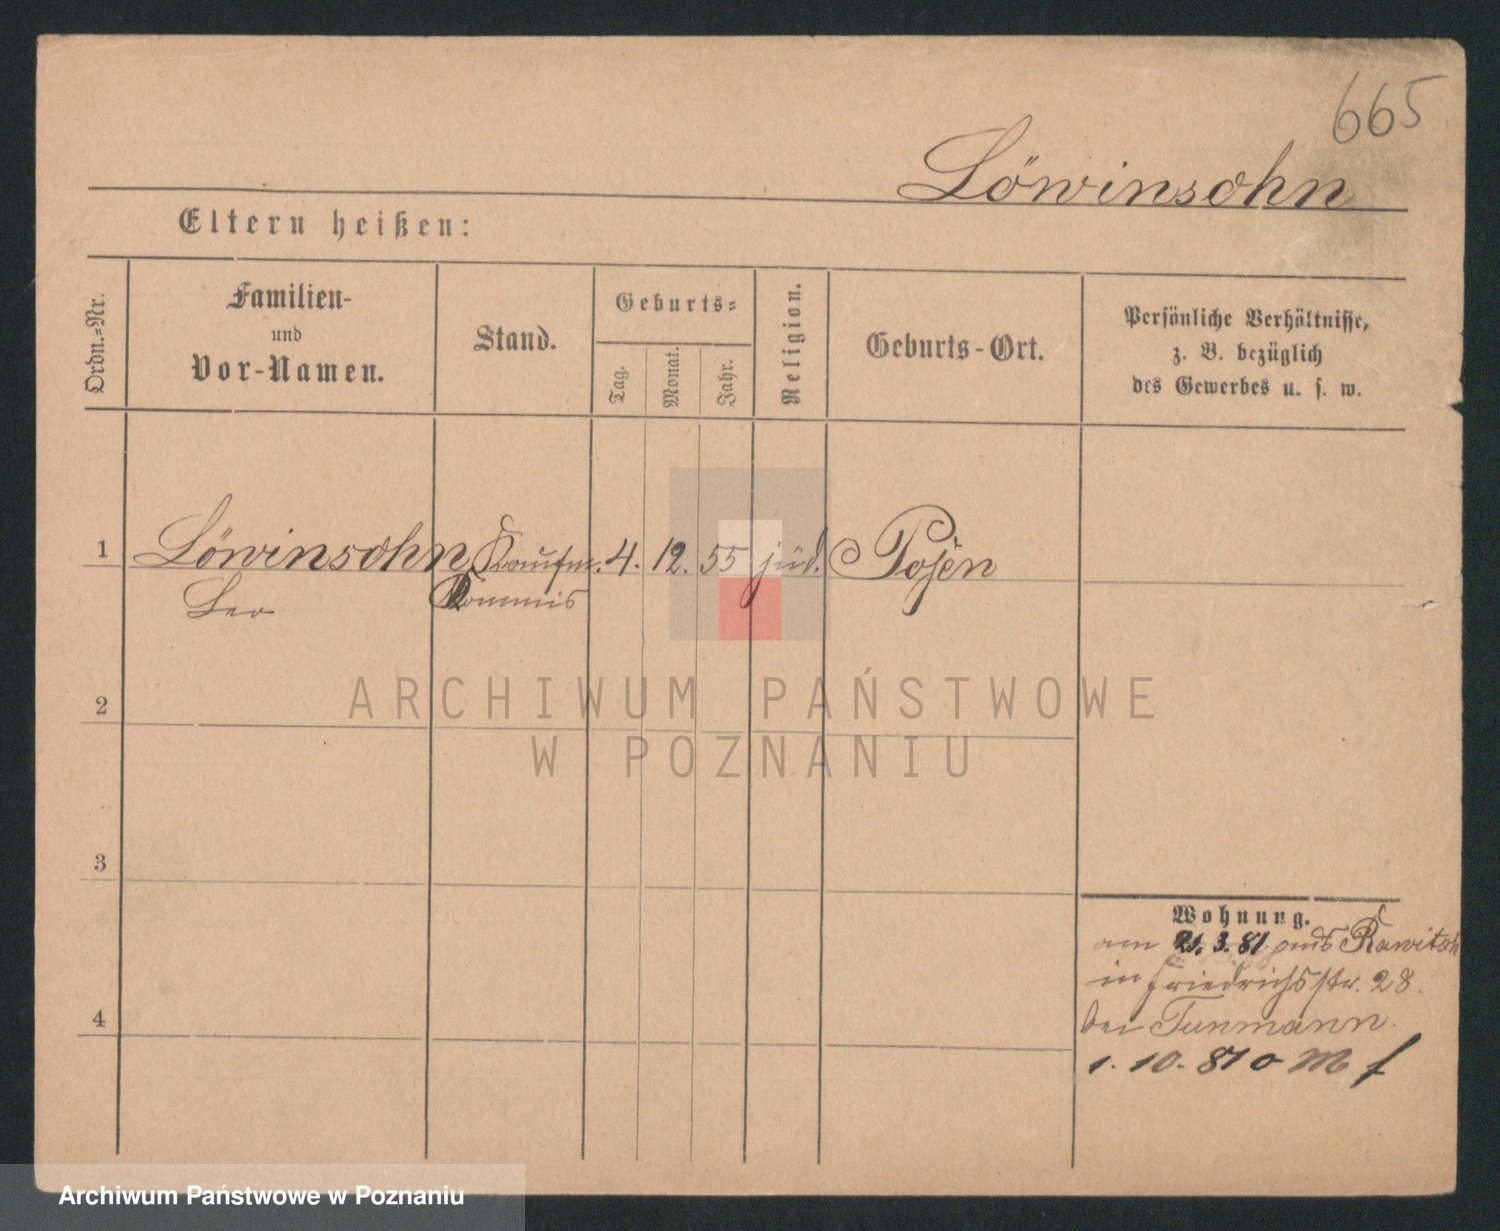 665
Löwinsohn
Eltern heißen:
Ordn.-Nr.
Familien-
und
Vor-Namen.
Stand.
Geburts-
Tag.
Monat.
Jahr.
Religion.
Geburts-Ort.
Persönliche Verhältnisse,
z. B. bezüglich
des Gewerbes u. s. w.
1 Löwinsohn Kaufm. 4. 12. 55 jüd. Posen
Leo Kommis
2
ARCHIWUM PAŃSTWOWE
W POZNANIU
3
Wohnung.
am 21. 3. 81. aus Rawitsch
in Friedrichsstr. 28.
bei Tunmann.
4
1. 10. 81 o M f
Archiwum Państwowe w Poznaniu